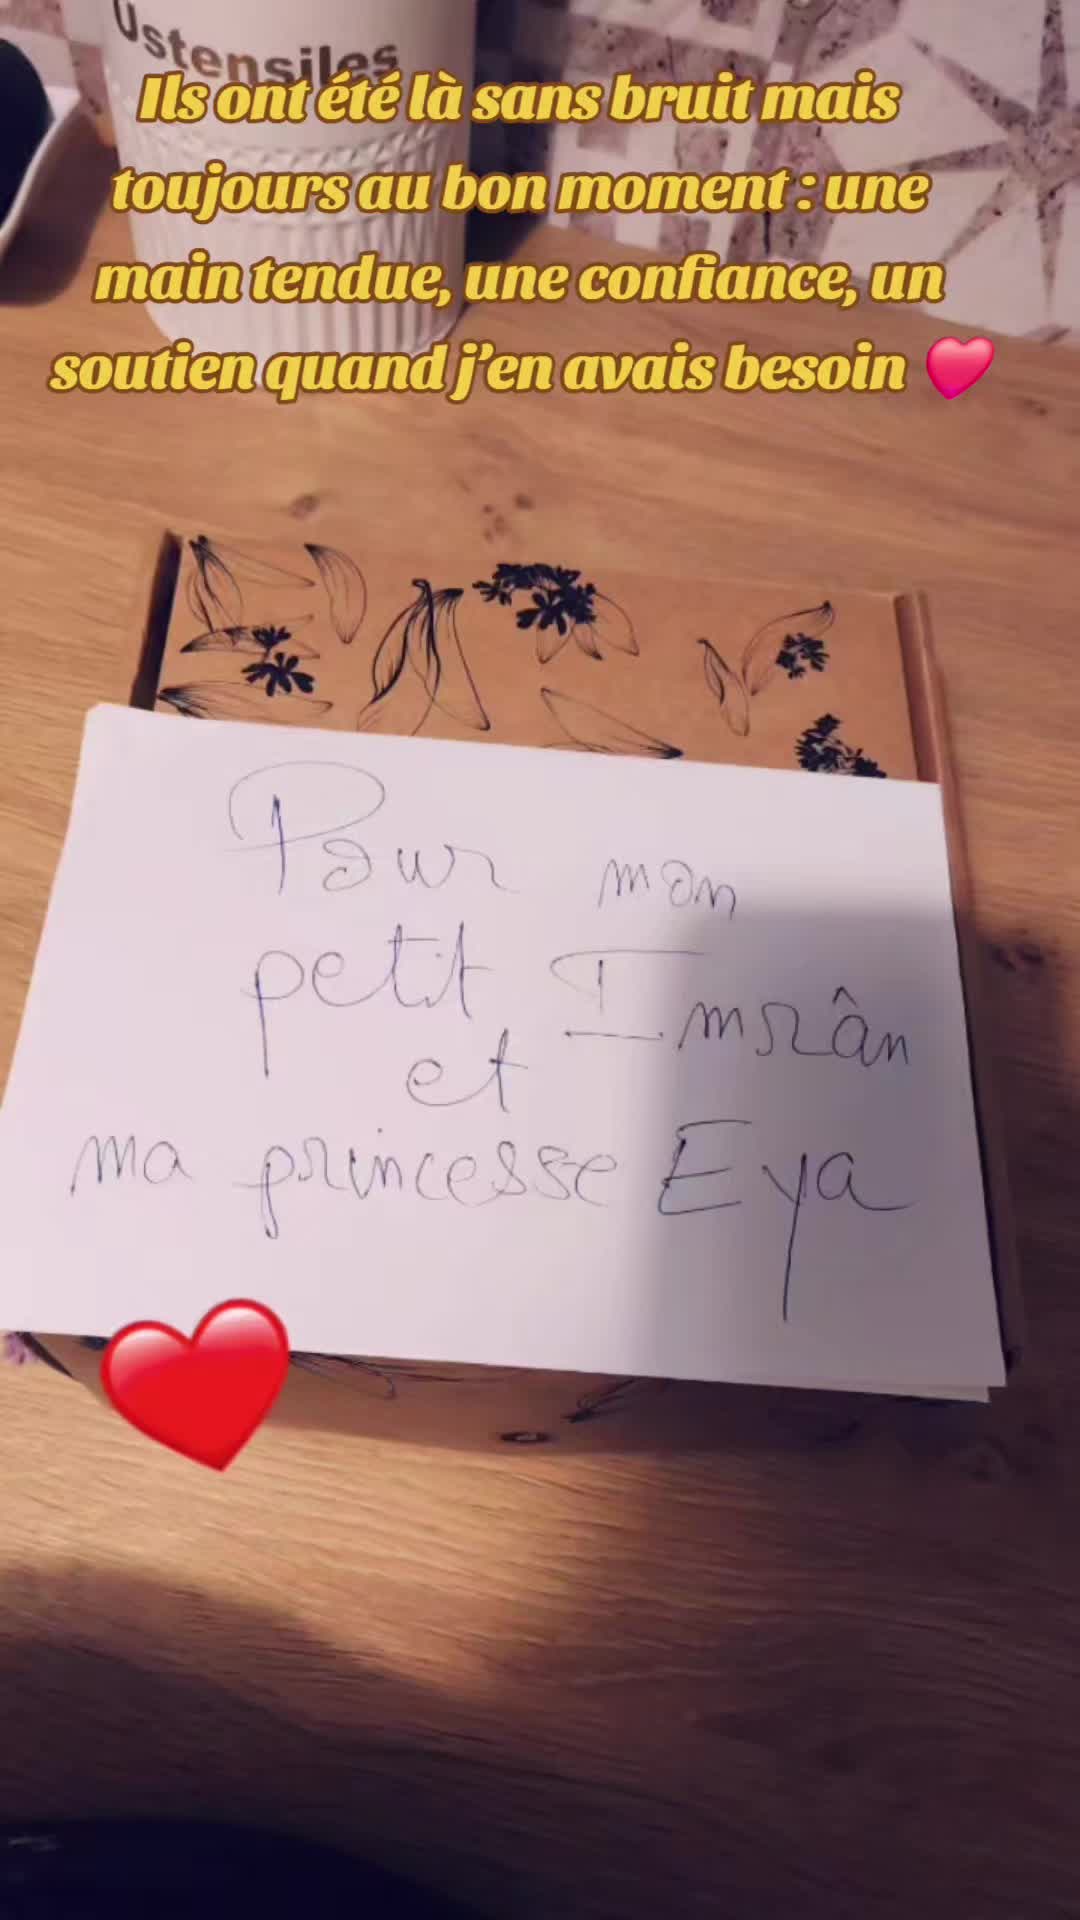 Ustensiles
Ils ont été là sans bruit mais
toujours au bon moment : une
main tendue, une confiance, un
soutien quand j'en avais besoin 💓
Pour mon
petit Imrân
et
ma princesse Eya